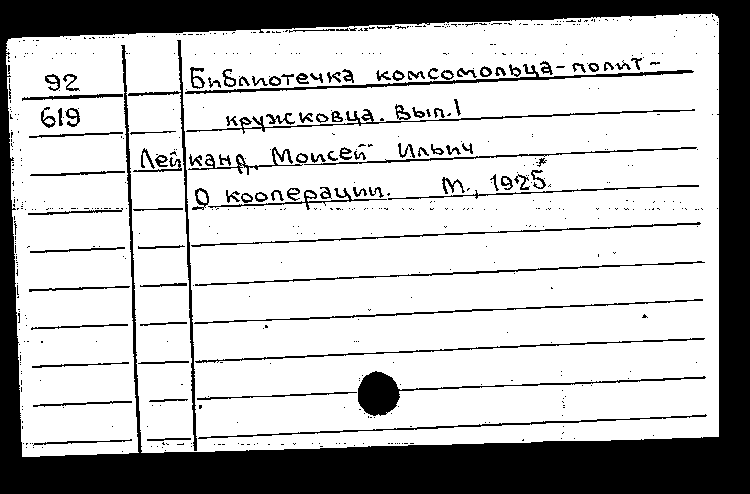 92 Библиотечка комсомольца-полит-
619 кружковца. Вып.1
Лейканд, Моисей Ильич
О кооперации. М., 1925